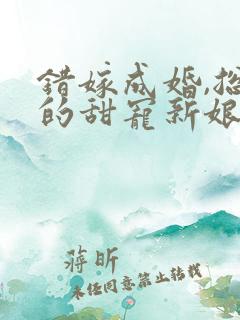 錯嫁成婚,總
的甜寵新娘
蔣昕
未任同意禁止轉載